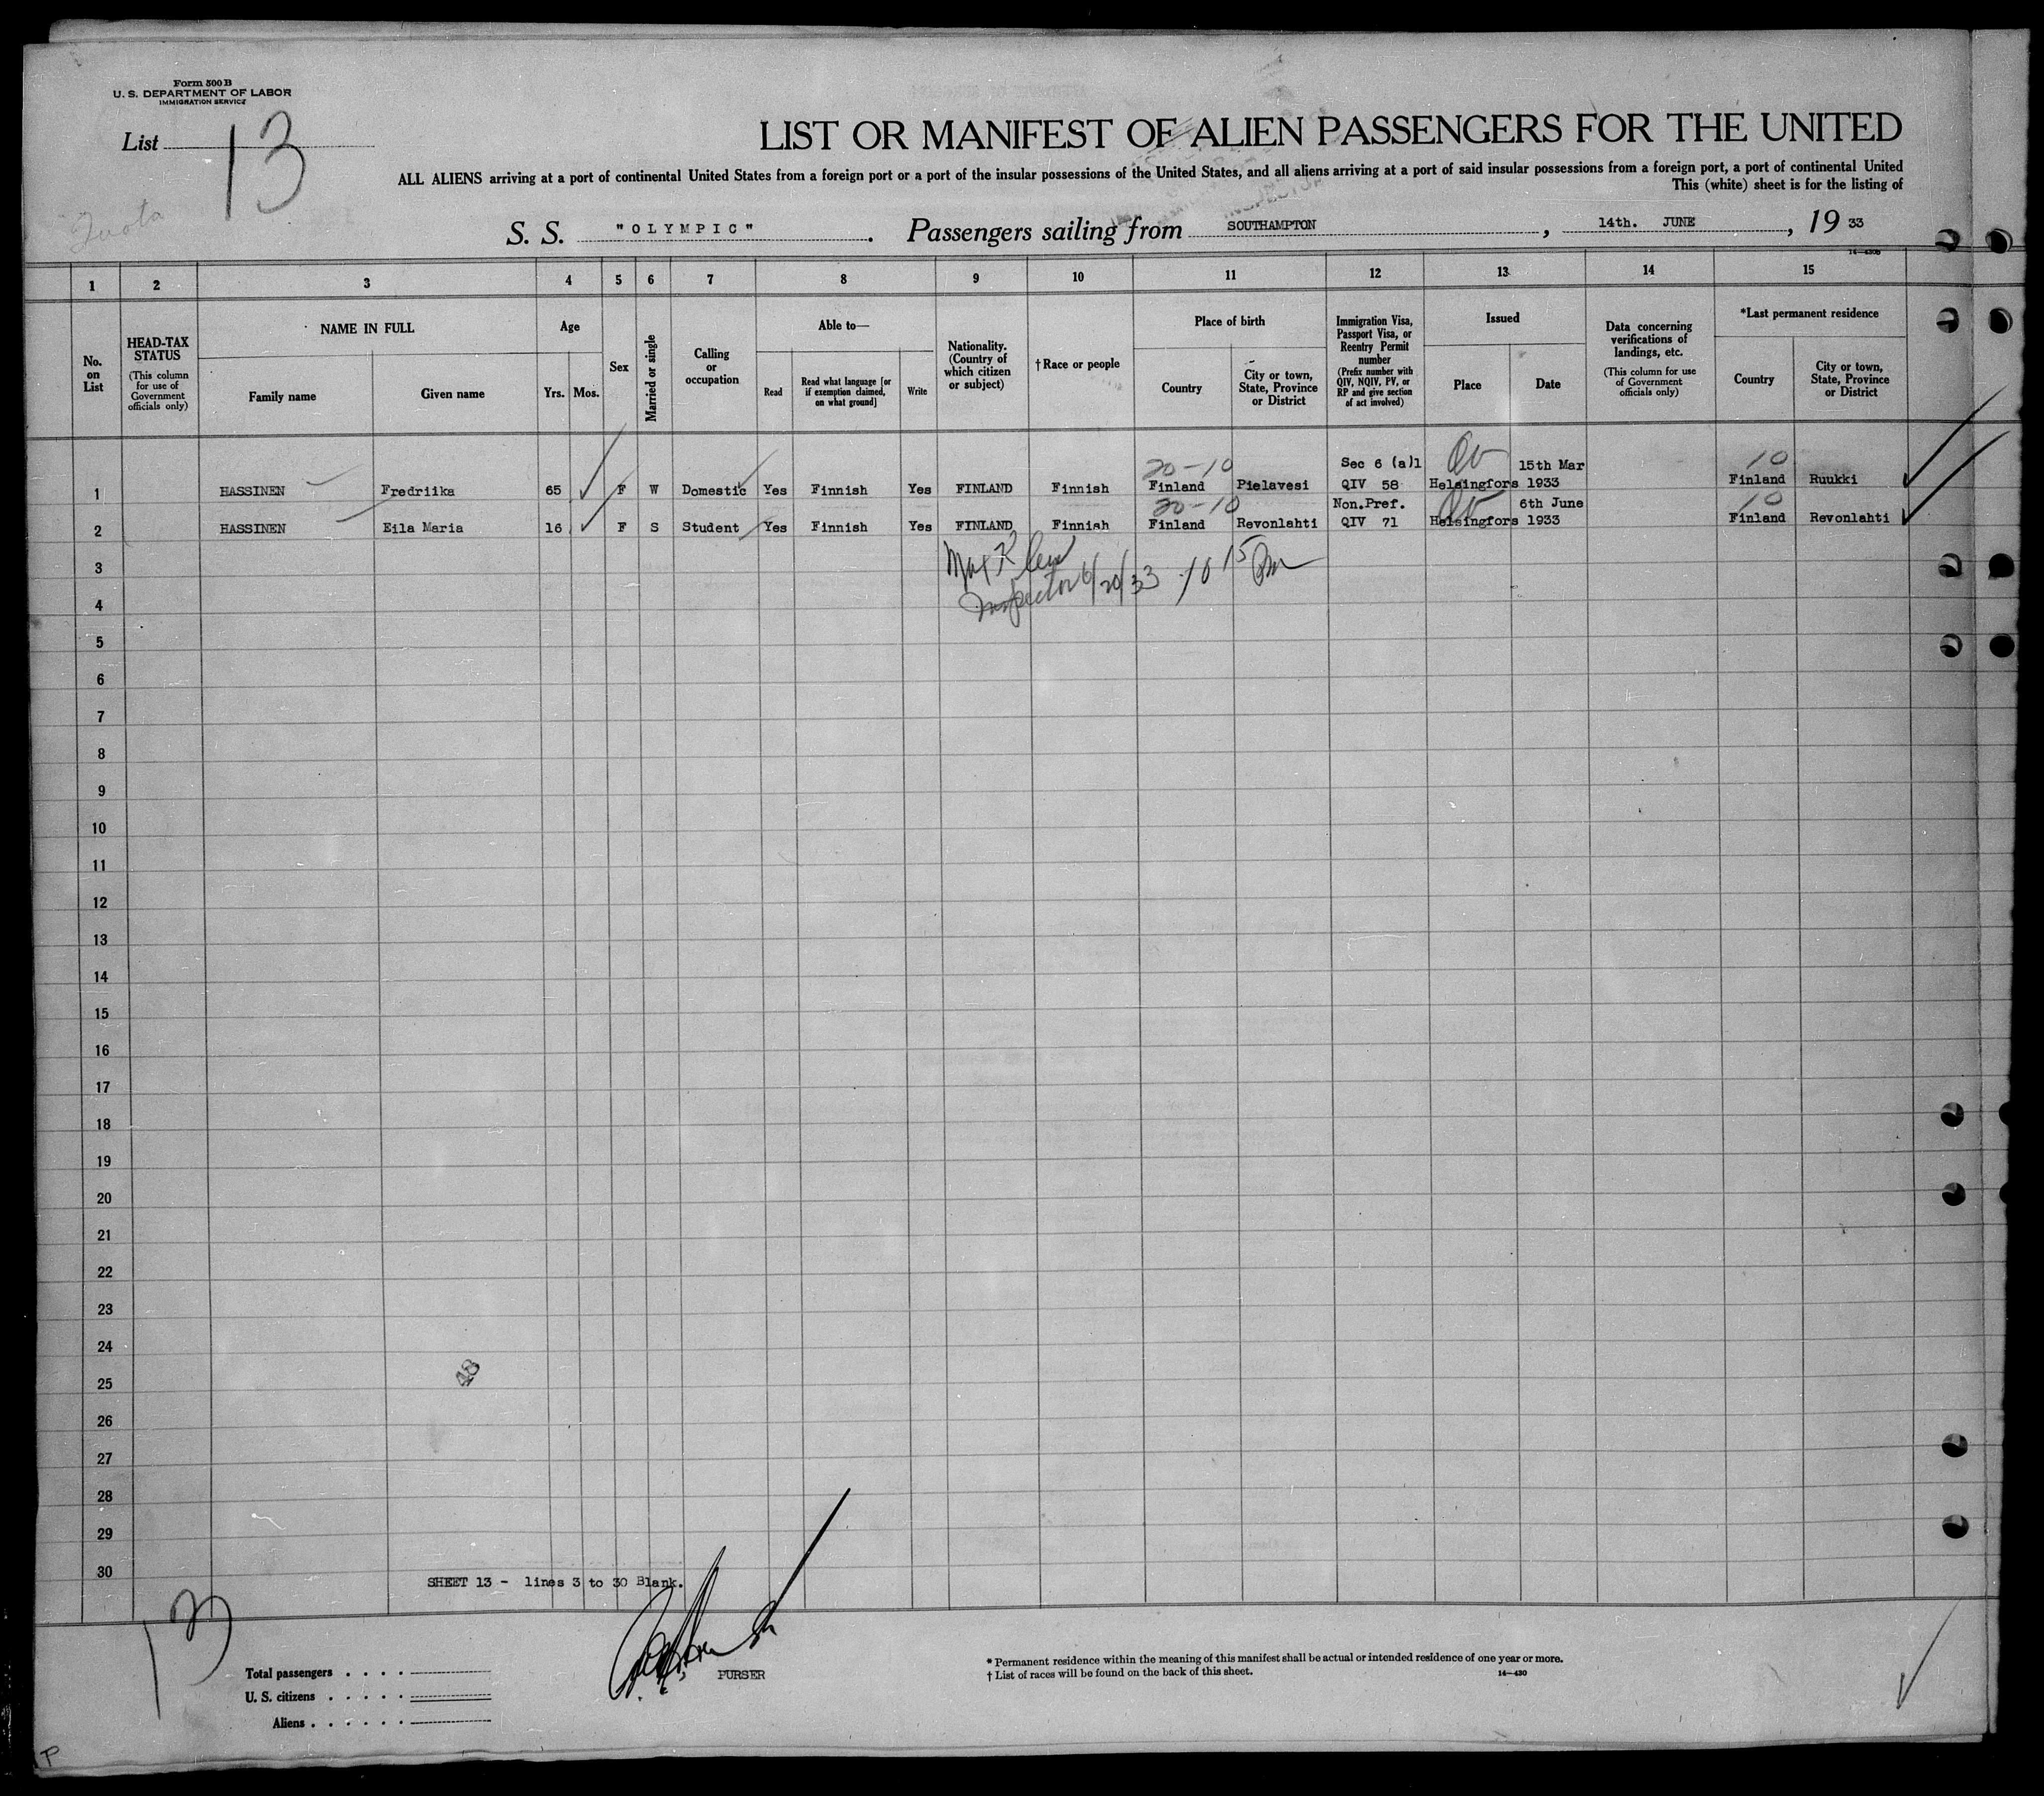 Form 500 B
U. S. DEPARTMENT OF LABOR
IMMIGRATION SERVICE
List 13
Quota
LIST OR MANIFEST OF ALIEN PASSENGERS FOR THE UNITED
ALL ALIENS arriving at a port of continental United States from a foreign port or a port of the insular possessions of the United States, and all aliens arriving at a port of said insular possessions from a foreign port, a port of continental United
This (white) sheet is for the listing of
S. S. "OLYMPIC". Passengers sailing from SOUTHAMPTON, 14th. JUNE, 19 33
14—430B
1 2 3 4 5 6 7 8 9 10 11 12 13 14 15
No. on List
HEAD-TAX STATUS (This column for use of Government officials only)
NAME IN FULL
Family name
Given name
Age
Yrs. Mos.
Sex
Married or single
Calling or occupation
Able to—
Read
Read what language [or if exemption claimed, on what ground]
Write
Nationality. (Country of which citizen or subject)
† Race or people
Place of birth
Country
City or town, State, Province or District
Immigration Visa, Passport Visa, or Reentry Permit number (Prefix number with QIV, NQIV, PV, or RP and give section of act involved)
Issued
Place
Date
Data concerning verifications of landings, etc. (This column for use of Government officials only)
*Last permanent residence
Country
City or town, State, Province or District
20-10 Sec 6 (a)1 15th Mar 10
1 HASSINEN Fredriika 65 F W Domestic Yes Finnish Yes FINLAND Finnish Finland Pielavesi QIV 58 Helsingfors 1933 Finland Ruukki
20-10 Non.Pref. 6th June 10
2 HASSINEN Eila Maria 16 F S Student Yes Finnish Yes FINLAND Finnish Finland Revonlahti QIV 71 Helsingfors 1933 Finland Revonlahti
3
Inspector 6/20/33 10 15
4
5
6
7
8
9
10
11
12
13
14
15
16
17
18
19
20
21
22
23
24
25
26
27
28
29
30
SHEET 13 - lines 3 to 30 Blank.
13
PURSER
Total passengers . . . .
U. S. citizens . . . . .
Aliens . . . . . .
* Permanent residence within the meaning of this manifest shall be actual or intended residence of one year or more.
† List of races will be found on the back of this sheet.
14—430
P